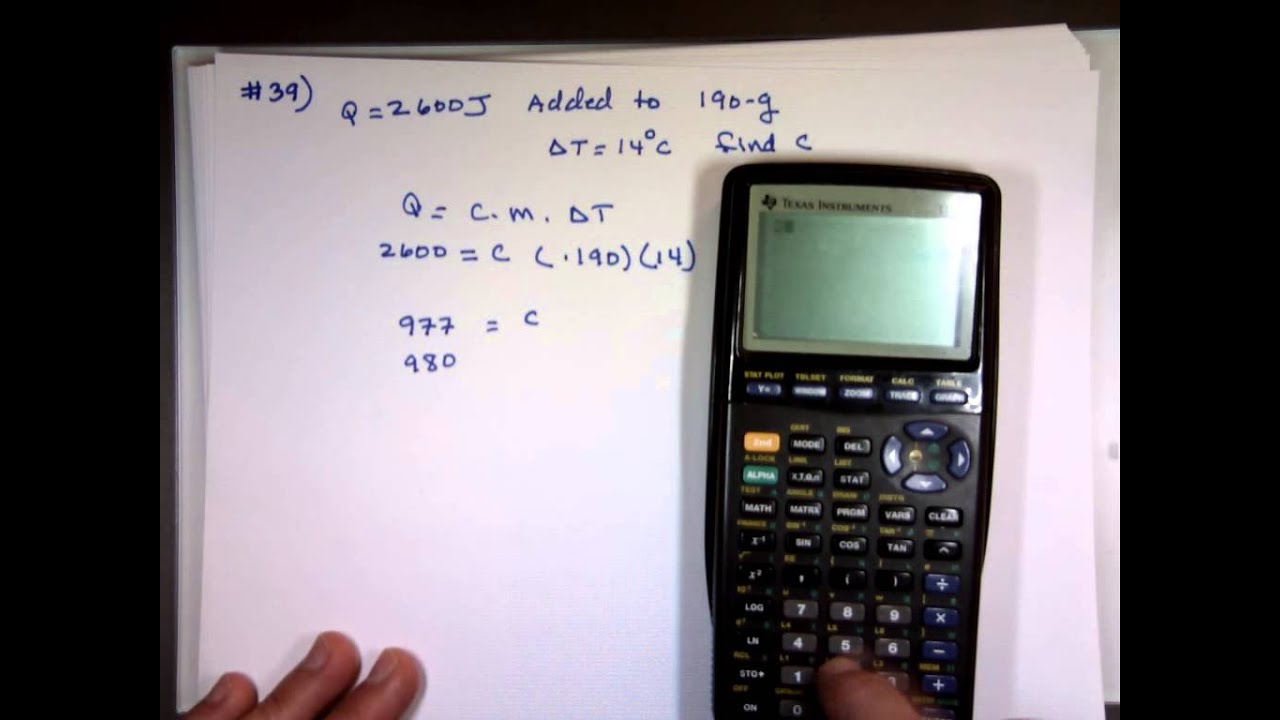 #39)
Q = 2600J Added to 190-g
ΔT = 14°C find C
Q = C.m. ΔT
2600 = C (.190)(14)
977 = C
980
TEXAS INSTRUMENTS
STAT PLOT TBLSET FORMAT CALC TABLE
Y= WINDOW ZOOM TRACE GRAPH
QUIT INS
2nd MODE DEL
A-LOCK LINK LIST
ALPHA X,T,θ,n STAT
TEST ANGLE DRAW DISTR
MATH MATRX PRGM VARS CLEAR
SIN⁻¹ COS⁻¹ TAN⁻¹
x⁻¹ SIN COS TAN ^
EE
x² , ( ) ÷
LOG 7 8 9 ×
L4 L5 L6
LN 4 5 6 −
RCL L1 L3 MEM
STO▸ 1 +
OFF
ON 0